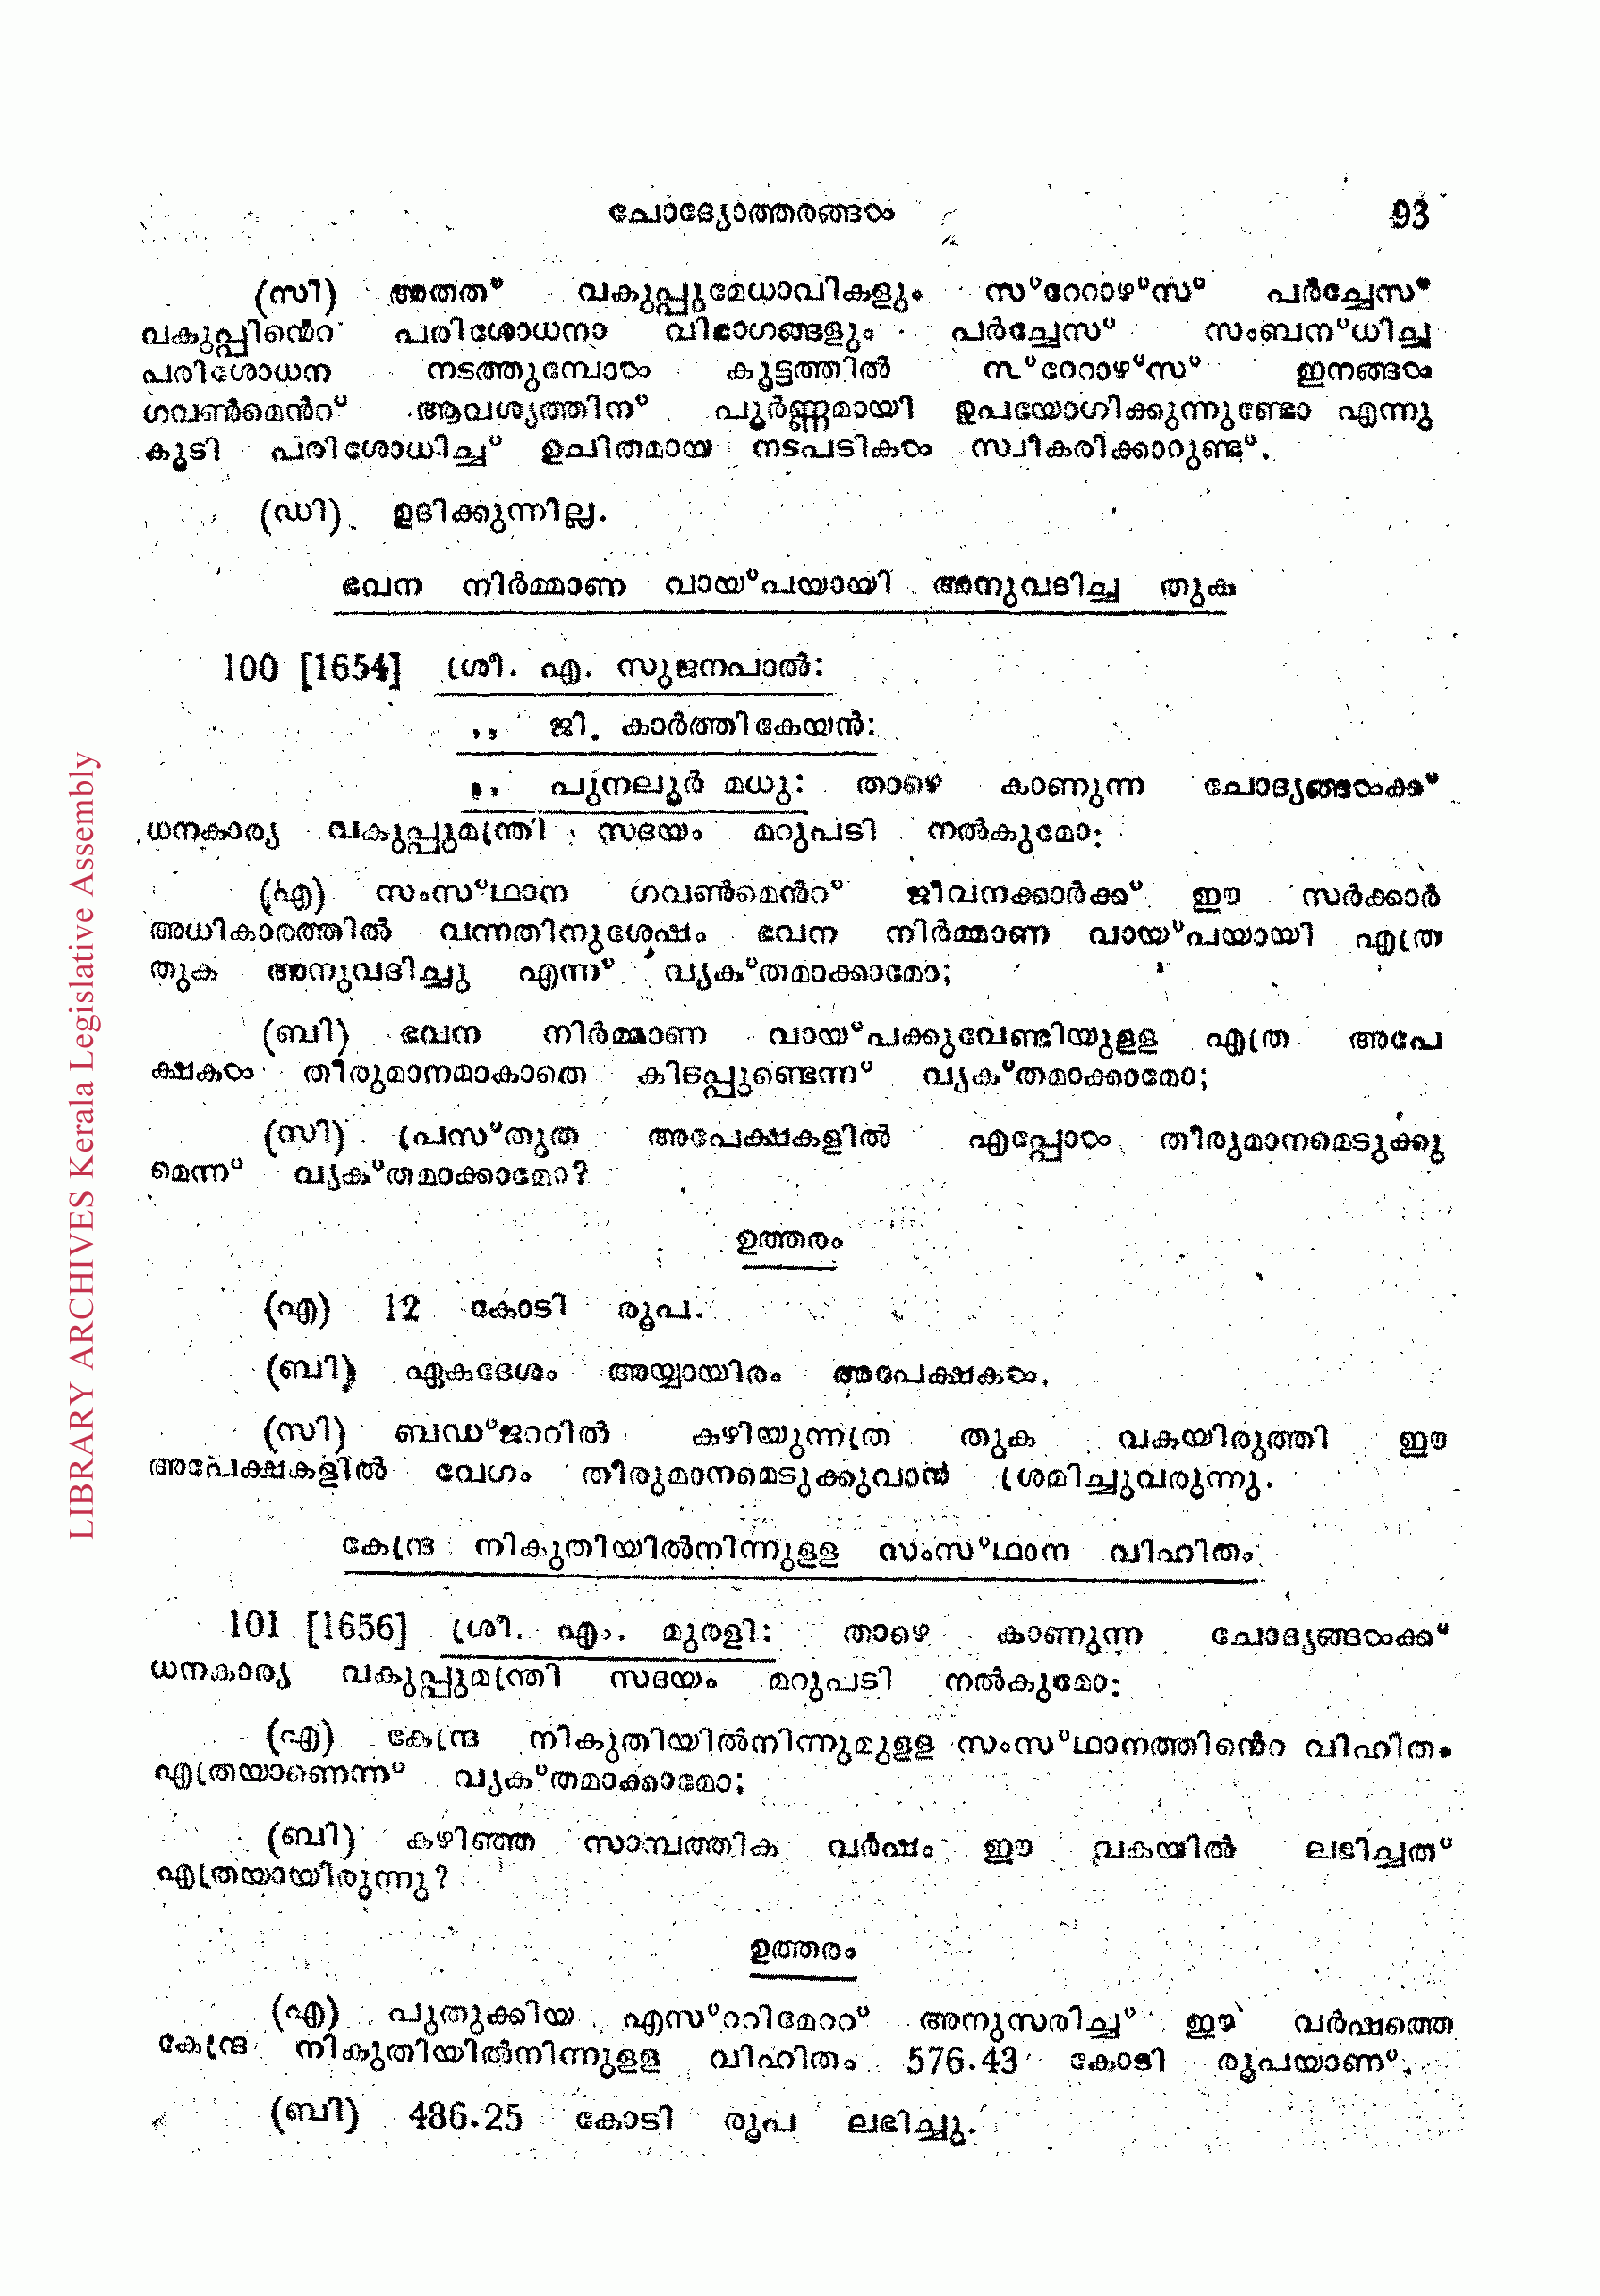 ചോദ്യോത്തരങ്ങൾ 93
(സി) അതത് വകുപ്പുമേധാവികളും സ്റേറാഴ്സ് പർച്ചേസ്
വകുപ്പിൻെറ പരിശോധനാ വിഭാഗങ്ങളും പർച്ചേസ് സംബന്ധിച്ച
പരിശോധന നടത്തുമ്പോൾ കൂട്ടത്തിൽ സ്റേറാഴ്സ് ഇനങ്ങൾ
ഗവൺമെൻറ് ആവശ്യത്തിന് പൂർണ്ണമായി ഉപയോഗിക്കുന്നുണ്ടോ എന്നു
കൂടി പരിശോധിച്ച് ഉചിതമായ നടപടികൾ സ്വീകരിക്കാറുണ്ട്.
(ഡി) ഉദിക്കുന്നില്ല.
ഭവന നിർമ്മാണ വായ്പയായി അനുവദിച്ച തുക
100 [1654] ശ്രീ. എ. സുജനപാൽ:
,, ജി. കാർത്തികേയൻ:
,, പുനലൂർ മധു: താഴെ കാണുന്ന ചോദ്യങ്ങൾക്ക്
ധനകാര്യ വകുപ്പുമന്ത്രി സദയം മറുപടി നൽകുമോ:
(എ) സംസ്ഥാന ഗവൺമെൻറ് ജീവനക്കാർക്ക് ഈ സർക്കാർ
അധികാരത്തിൽ വന്നതിനുശേഷം ഭവന നിർമ്മാണ വായ്പയായി എത്ര
തുക അനുവദിച്ചു എന്ന് വ്യക്തമാക്കാമോ;
(ബി) ഭവന നിർമ്മാണ വായ്പക്കുവേണ്ടിയുള്ള എത്ര അപേ
ക്ഷകൾ തീരുമാനമാകാതെ കിടപ്പുണ്ടെന്ന് വ്യക്തമാക്കാമോ;
(സി) പ്രസ്തുത അപേക്ഷകളിൽ എപ്പോൾ തീരുമാനമെടുക്കു
മെന്ന് വ്യക്തമാക്കാമോ?
ഉത്തരം
(എ) 12 കോടി രൂപ.
(ബി) ഏകദേശം അയ്യായിരം അപേക്ഷകൾ.
(സി) ബഡ്ജററിൽ കഴിയുന്നത്ര തുക വകയിരുത്തി ഈ
അപേക്ഷകളിൽ വേഗം തീരുമാനമെടുക്കുവാൻ ശ്രമിച്ചുവരുന്നു.
കേന്ദ്ര നികുതിയിൽനിന്നുള്ള സംസ്ഥാന വിഹിതം
101 [1656] ശ്രീ. എം. മുരളി: താഴെ കാണുന്ന ചോദ്യങ്ങൾക്ക്
ധനകാര്യ വകുപ്പുമന്ത്രി സദയം മറുപടി നൽകുമോ:
(എ) കേന്ദ്ര നികുതിയിൽനിന്നുമുള്ള സംസ്ഥാനത്തിൻെറ വിഹിതം
എത്രയാണെന്ന് വ്യക്തമാക്കാമോ;
(ബി) കഴിഞ്ഞ സാമ്പത്തിക വർഷം ഈ വകയിൽ ലഭിച്ചത്
എത്രയായിരുന്നു?
ഉത്തരം
(എ) പുതുക്കിയ എസ്ററിമേററ് അനുസരിച്ച് ഈ വർഷത്തെ
കേന്ദ്ര നികുതിയിൽനിന്നുള്ള വിഹിതം 576.43 കോടി രൂപയാണ്.
(ബി) 486.25 കോടി രൂപ ലഭിച്ചു.
LIBRARY ARCHIVES Kerala Legislative Assembly